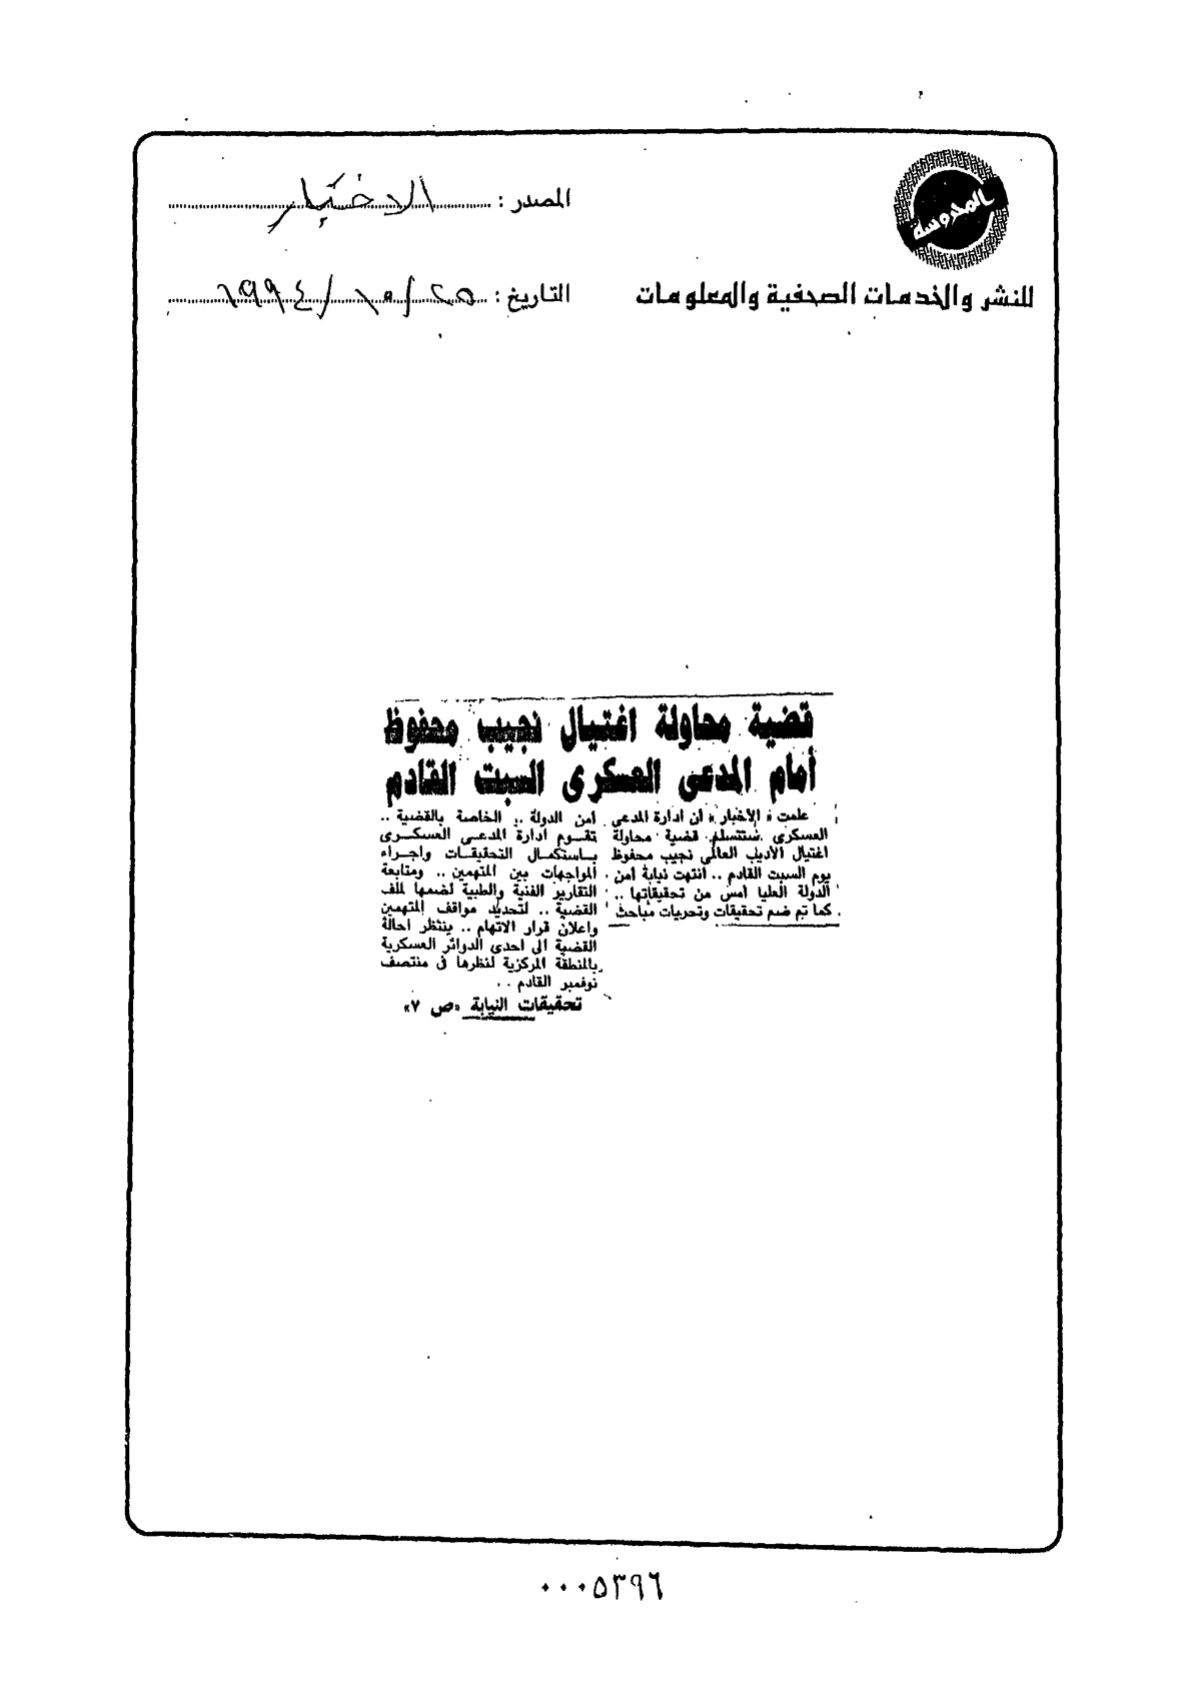 المدوسة
للنشر والخدمات الصحفية والمعلومات
المصدر : الاخبار
التاريخ : ٢٥/١٠/١٩٩٤
قضية محاولة اغتيال نجيب محفوظ
أمام المدعى العسكرى السبت القادم
علمت « الأخبار » ان ادارة المدعى
العسكرى ستتسلم قضية محاولة
اغتيال الأديب العالمى نجيب محفوظ
يوم السبت القادم .. انتهت نيابة أمن
الدولة العليا أمس من تحقيقاتها ..
كما تم ضم تحقيقات وتحريات مباحث
أمن الدولة .. الخاصة بالقضية ..
تقوم ادارة المدعى العسكرى
باستكمال التحقيقات واجراء
المواجهات بين المتهمين .. ومتابعة
التقارير الفنية والطبية لضمها لملف
القضية .. لتحديد مواقف المتهمين
واعلان قرار الاتهام .. ينتظر احالة
القضية الى احدى الدوائر العسكرية
بالمنطقة المركزية لنظرها فى منتصف
نوفمبر القادم ..
تحقيقات النيابة «ص ٧»
٠٠٠٥٣٩٦